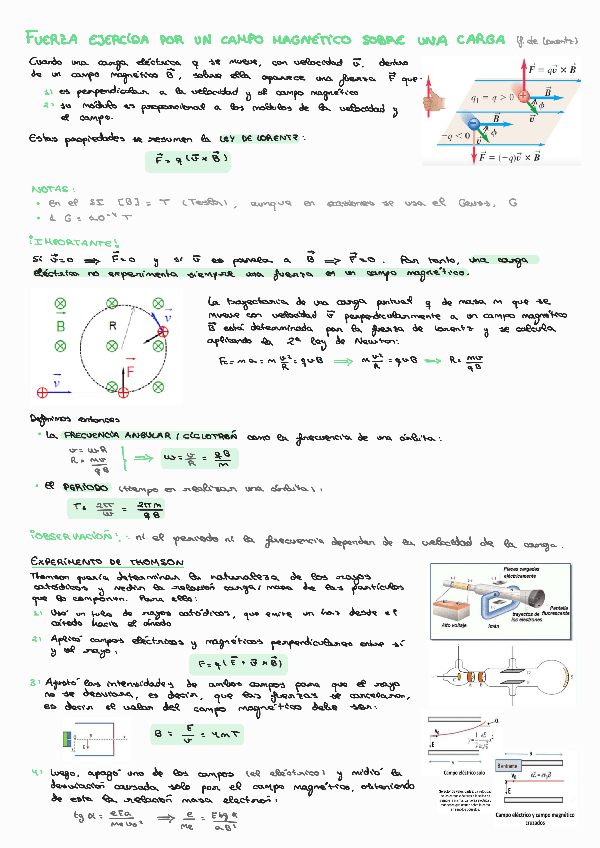 FUERZA EJERCIDA POR UN CAMPO MAGNÉTICO SOBRE UNA CARGA (f. de Lorentz)
Cuando una carga eléctrica q se mueve, con velocidad v⃗, dentro
de un campo magnético B⃗, sobre ella aparece una fuerza F⃗ que:
1: es perpendicular a la velocidad y al campo magnético
2: su módulo es proporcional a los módulos de la velocidad y
el campo.
Estas propiedades se resumen la LEY DE LORENTZ:
F⃗ = q (v⃗ × B⃗)
F⃗ = qv⃗ × B⃗
q₁ = q > 0
B⃗
ϕ
v⃗
B⃗
−q < 0
ϕ
v⃗
F⃗ = (−q)v⃗ × B⃗
NOTAS:
• En el SI [B] = T (Tesla), aunque en ocasiones se usa el Gauss, G
• 1 G = 10⁻⁴ T
¡IMPORTANTE!
Si v⃗=0 ⟹ F⃗=0 y si v⃗ es paralela a B⃗ ⟹ F⃗=0. Por tanto, una carga
eléctrica no experimenta siempre una fuerza en un campo magnético.
B⃗
R
v⃗
F⃗
v⃗
La trayectoria de una carga puntual q de masa m que se
mueve con velocidad v⃗ perpendicularmente a un campo magnético
B⃗ está determinada por la fuerza de Lorentz y se calcula
aplicando la 2ª ley de Newton:
F = m a = m v²/R = q v B ⟹ m v²/R = q v B ⟹ R = mv/qB
Definimos entonces
• La FRECUENCIA ANGULAR / CICLOTRÓN como la frecuencia de una órbita:
v = ωR
R = mv/qB
⟹ ω = v/R = qB/m
• El PERÍODO (tiempo en realizar una órbita):
T = 2π/ω = 2πm/qB
¡OBSERVACIÓN!: ni el periodo ni la frecuencia dependen de la velocidad de la carga.
EXPERIMENTO DE THOMSON
Thomson quería determinar la naturaleza de los rayos
catódicos y medir la relación carga/masa de las partículas
que la componen. Para ello:
1: Usó un tubo de rayos catódicos, que emite un haz desde el
cátodo hacia el ánodo
2: Aplicó campos eléctricos y magnéticos perpendiculares entre sí
y al rayo:
F = q (E⃗ + v⃗ × B⃗)
3: Ajustó las intensidades de ambos campos para que el rayo
no se desviara, es decir, que las fuerzas se cancelaran,
es decir el valor del campo magnético debe ser:
B = E/v = 4mT
4: Luego, apagó uno de los campos (el eléctrico) y midió la
desviación causada solo por el campo magnético, obteniendo
de esta la relación masa electrón:
Placas cargadas
eléctricamente
Alto voltaje
Imán
Trayectos de
los electrones
Pantalla
fluorescente
Campo eléctrico solo
B entrante
Campo eléctrico y campo magnético
cruzados